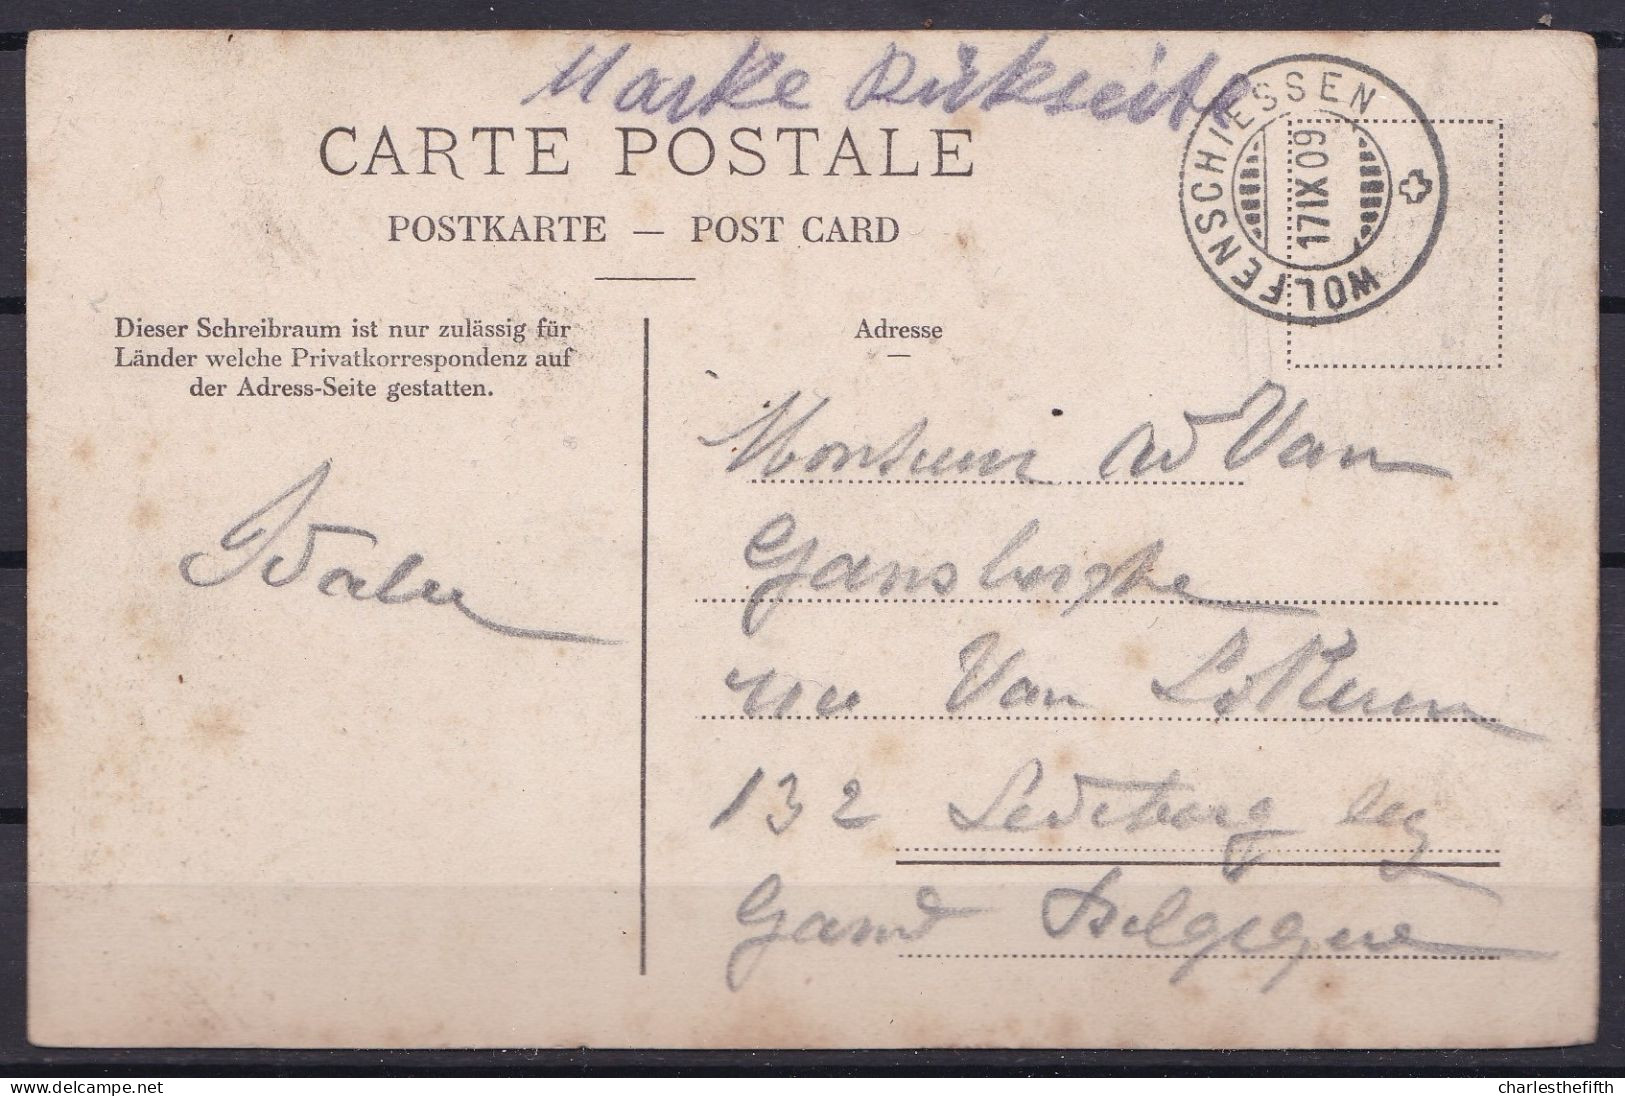 Marke Rükseite
CARTE POSTALE
POSTKARTE — POST CARD
WOLFENSCHIESSEN
17 IX 09
Dieser Schreibraum ist nur zulässig für
Länder welche Privatkorrespondenz auf
der Adress-Seite gestatten.
Adresse
Monsieur W Van
Gansberghe
rue Van Lokeren
132 Ledeberg lez
Gand Belgique
delcampe.net
charlesthefifth